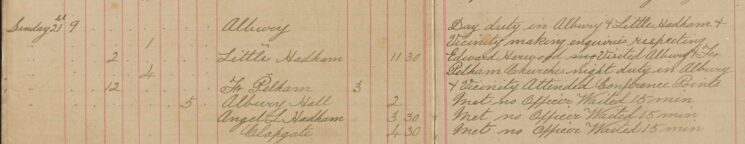 Sunday 21st 9 Albury Day duty in Albury & Little Hadham &
1 Vicinity making enquiries respecting
2 Little Hadham 11 30 Edward Harwood Visited Albury & Fx
4 Pelham Churches night duty in Albury
12 Fx Pelham 3 & Vicinity Attended Conference Points
5 Albury Hall 2 Met no Officer Waited 15 min
Angel L Hadham 3 30 Met no Officer Waited 15 min
Clapgate 4 30 Met no Officer Waited 15 min